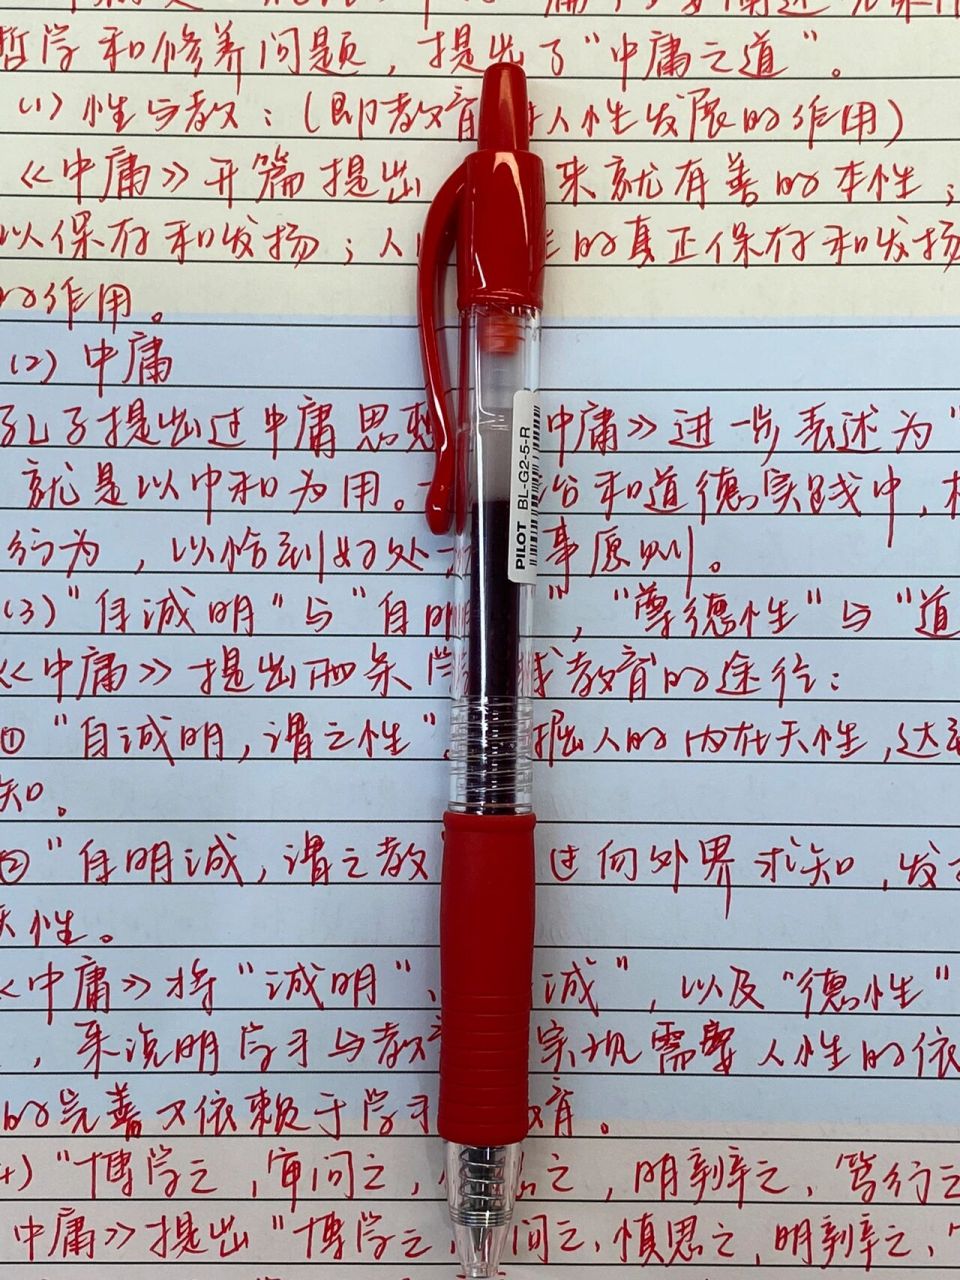 哲学和修养问题，提出了“中庸之道”。
(1) 性与教：(即教育 人性发展的作用)
《中庸》开篇提出 来就有善的本性；
以保存和发扬；人 的真正保存和发扬
的作用。
(2) 中庸
孔子提出过中庸思想 中庸》进一步表述为“
就是以中和为用。 和道德实践中，
行为，以恰到好处 事原则。
PILOT BL-G2-5-R
(3)“自诚明”与“自明 ”，“尊德性”与“道
《中庸》提出两条 或教育的途径：
①“自诚明，谓之性” 掘人的内在天性，达
知。
②“自明诚，谓之教 过向外界求知，发
天性。
《中庸》将“诚明”、 诚”，以及“德性”
，来说明学习与教 实现需要人性的依
的完善又依赖于学习 教育。
“博学之，审问之， 之，明辨之，笃行之
中庸》提出“博学之， 问之，慎思之，明辨之，